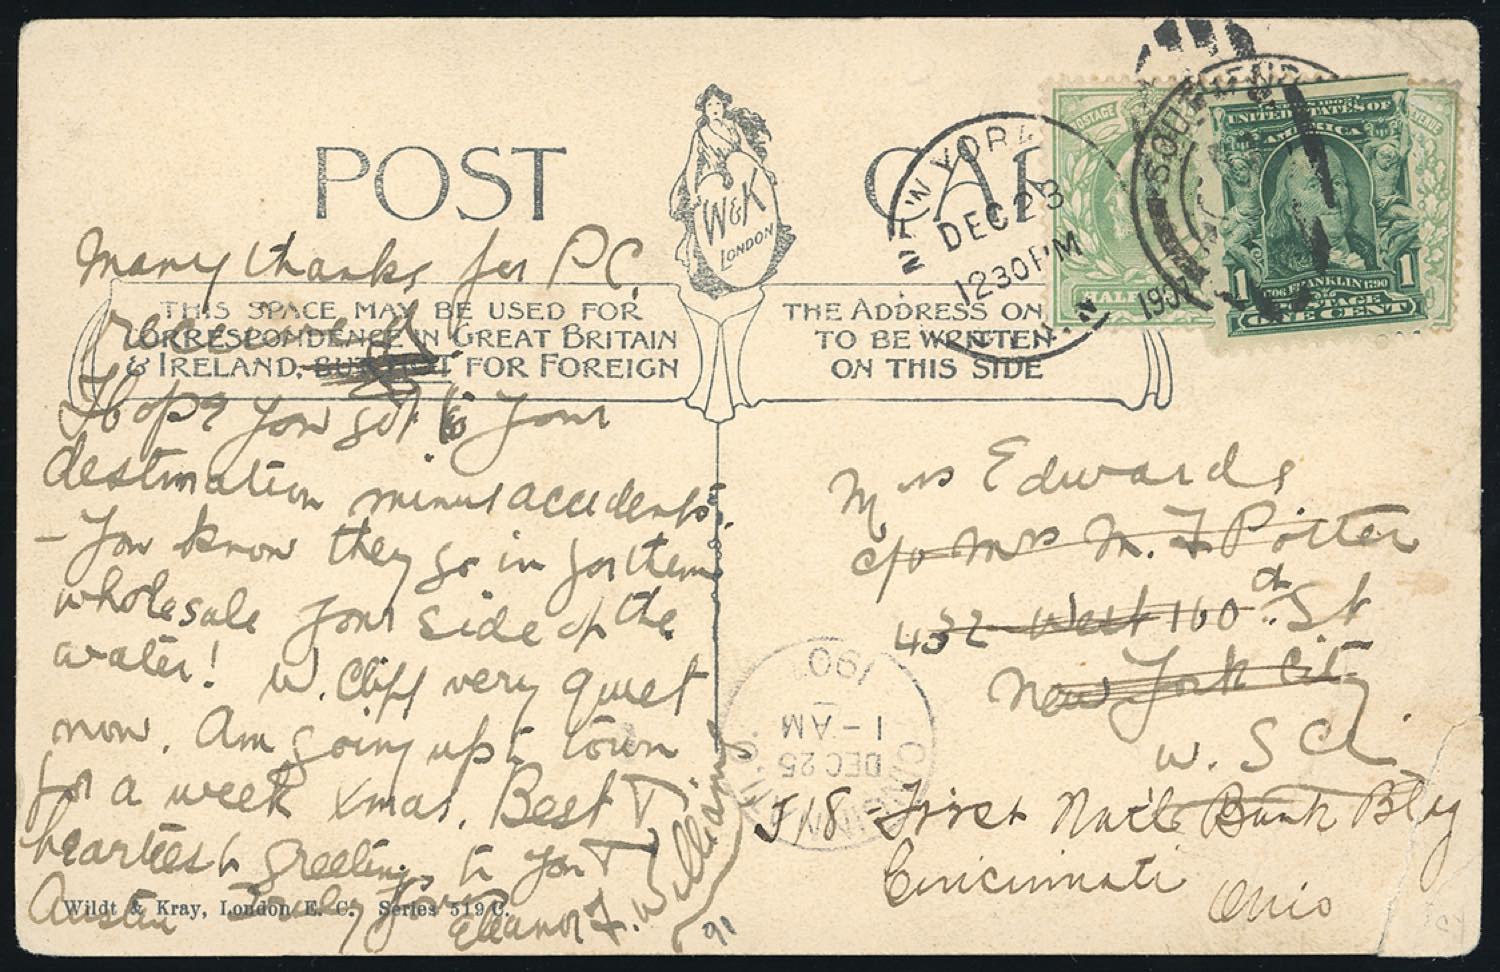 POST CARD
W&K
LONDON
THIS SPACE MAY BE USED FOR
CORRESPONDENCE IN GREAT BRITAIN
& IRELAND, BUT NOT FOR FOREIGN
THE ADDRESS ON
TO BE WRITTEN
ON THIS SIDE
NEW YORK
DEC 23
12 30 PM
N.Y.
SOUTHEND
1907
POSTAGE
HALF
UNITED STATES OF
AMERICA
FRANKLIN 1790
POSTAGE
1 1
ONE CENT
Many thanks for P C.
received
I hope you got to your
destination minus accidents.
- You know they go in for them
wholesale your side of the
water! W. Cliff very quiet
now. Am going up to town
for a week Xmas. Best &
heartiest greetings to you &
Austin
Eleanor F. Williams
91
Mrs Edwards
c/o Mrs M. F Potter
432 West 160th St
New York City
U. S A.
518 First Nat'l Bank Bldg
Cincinnati
Ohio
CINCINNATI, O.
DEC 25
1-AM
190
Wildt & Kray, London E. C. Series 519 C.